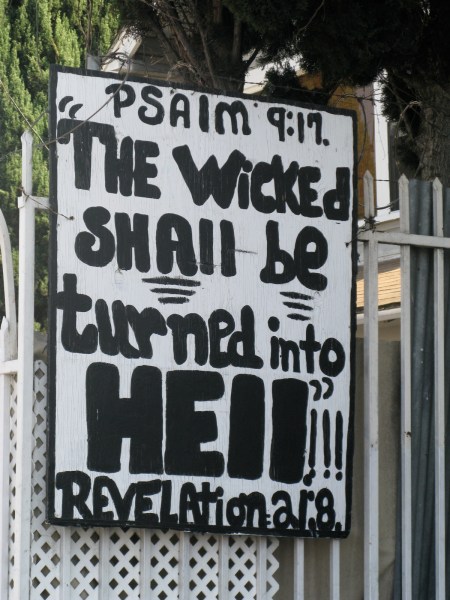 PSAlm 9:17.
"THE WicKed
SHAll be
turned into
HEll"!!!
REVELAtion:21:8.